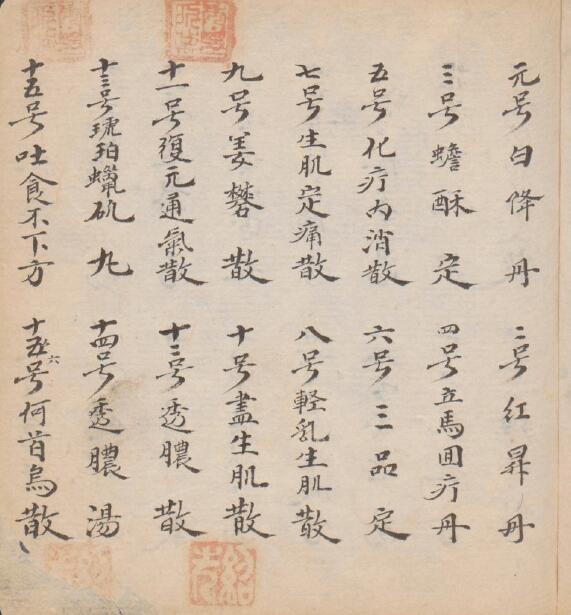 元号白降丹　二号红昇丹
三号蟾酥定　四号立馬回疔丹
五号化疔内消散　六号三品定
七号生肌定痛散　八号軽乳生肌散
九号姜礬散　十号盡生肌散
十一号復元通氣散　十二号透膿散
十三号琥珀蠟矾丸　十四号透膿湯
十五号吐食不下方　十五六号何首烏散